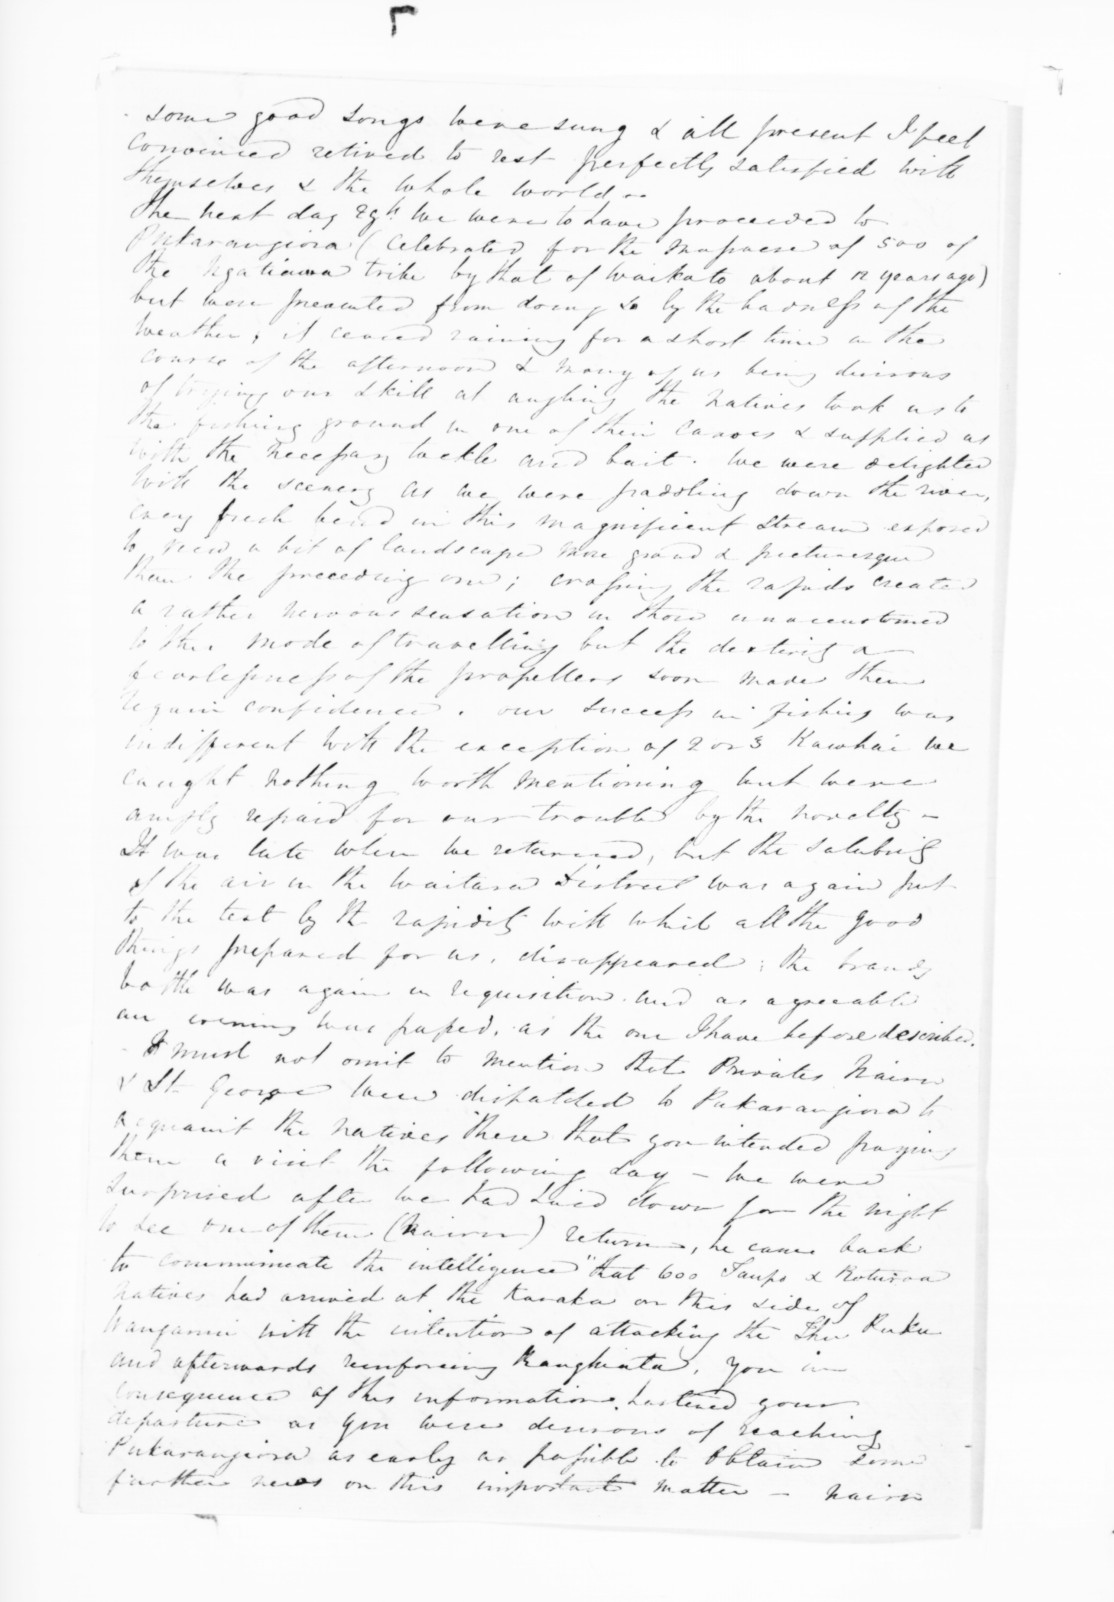 some good songs were sung & all present I feel
convinced retired to rest perfectly satisfied with
themselves & the whole world ~
The next day 29th we were to have proceeded to
Pukarangiora (celebrated for the massacre of 500 of
the Ngatiawa tribe by that of Waikato about 12 years ago)
but were prevented from doing so by the badness of the
weather; it ceased raining for a short time in the
course of the afternoon & many of us being desirous
of trying our skill at angling the natives took us to
the fishing ground in one of their canoes & supplied us
with the necessary tackle and bait. We were delighted
with the scenery as we were paddling down the river,
every fresh bend in this magnificent stream exposed
to view a bit of landscape more grand & picturesque
than the preceding one; crossing the rapids created
a rather nervous sensation in those unaccustomed
to this mode of travelling but the dexterity &
fearlessness of the propellers soon made them
regain confidence. our success in fishing was
indifferent with the exception of 2 or 3 Kawhai we
caught nothing worth mentioning but were
amply repaid for our trouble by the novelty –
It was late when we returned, but the salubrity
of the air in the Waitara District was again put
to the test by the rapidity with which all the good
things prepared for us, disappeared; the brandy
bottle was again in requisition and as agreeable
an evening was passed, as the one I have before described.
– I must not omit to mention that Privates Nairn
& St George were dispatched to Pukarangiora to
acquaint the natives there that you intended paying
them a visit the following day – We were
surprised after we had laid down for the night
to see one of them (Nairn) return, he came back
to communicate the intelligence "that 600 Taupo & Roturoa
natives had arrived at the Karaka on this side of
Wanganui with the intention of attacking the Ihu Puku
and afterwards reinforcing Ranghiata, You in
consequence of this information, hastened your
departure as you were desirous of reaching
Pukarangiora as early as possible to obtain some
further news on this important matter – Nairn